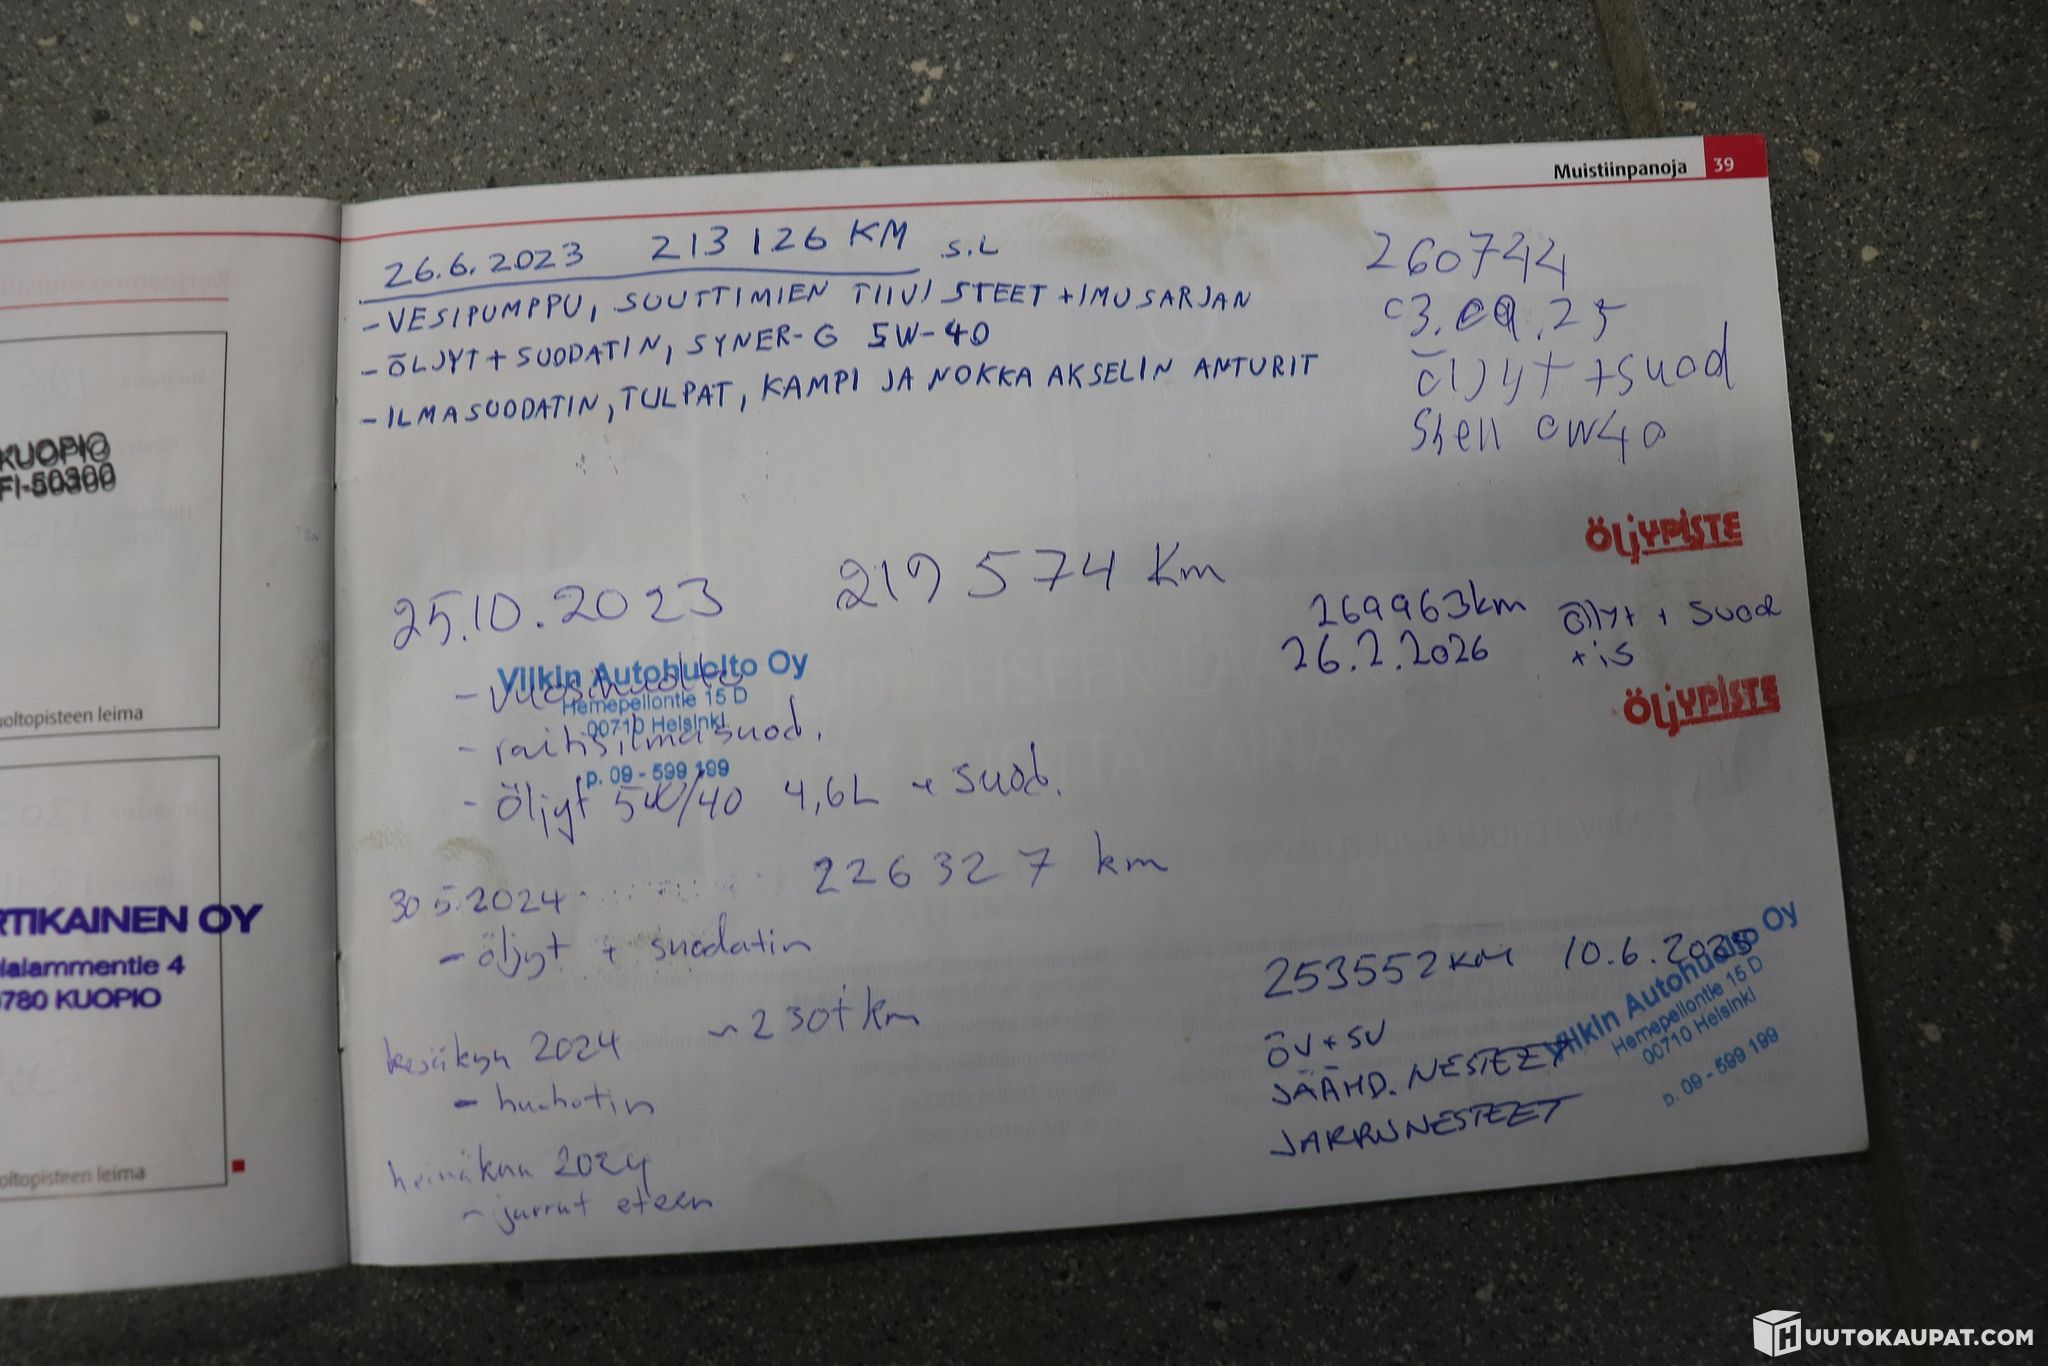 Muistiinpanoja 39
26.6.2023 213 126 KM S.L
- VESIPUMPPU, SUUTTIMIEN TIIVISTEET + IMUSARJAN
- ÖLJYT + SUODATIN, SYNER-G 5W-40
- ILMASUODATIN, TULPAT, KAMPI JA NOKKA AKSELIN ANTURIT
25.10.2023 219 574 Km
Vilkin Autohuolto Oy
- vuosihuolto
Hernepellontie 15 D
00710 Helsinki
- raitisilmasuod.
p. 09 - 599 199
- Öljyt 5W/40 4,6L + suod.
30.5.2024 226 327 km
- öljyt + suodatin
kesäkuu 2024 ~ 230tkm
- huohotin
heinäkuu 2024
- jarrut eteen
260744
03.09.25
öljyt + suod
Shell 0W40
ÖLJYPISTE
269963km öljyt + suod
26.2.2026 + is
ÖLJYPISTE
253552 KM 10.6.2025
Vilkin Autohuolto Oy
Hernepellontie 15 D
00710 Helsinki
p. 09 - 599 199
ÖV + SV
JÄÄHD. NESTEET
JARRUNESTEET
KUOPIO
FI-50300
oltopisteen leima
RTIKAINEN OY
lalammentie 4
780 KUOPIO
oltopisteen leima
HUUTOKAUPAT.COM